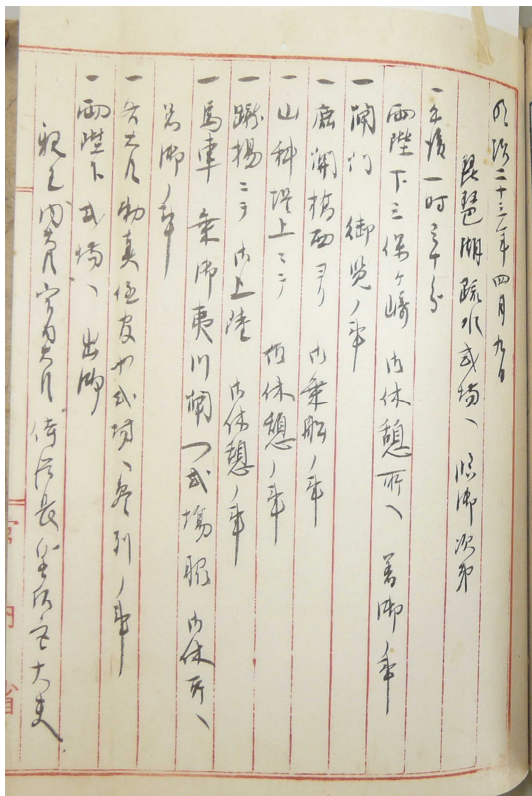 明治二十三年四月九日
琵琶湖疏水式場ヘ臨御次第
一午後一時三十分
両陛下三保ケ崎御休憩所ヘ着御ノ事
一閘門御覧ノ事
一鹿関橋西ヨリ御乗船ノ事
一山科堤上ニテ御休憩ノ事
一蹴揚ニテ御上陸御休憩ノ事
一馬車乗御夷川橋ヘ式場御休所ヘ
着御ノ事
一各大臣勅奏任官ヤ式場ヘ参列ノ事
一両陛下式場ヘ出御
親王内大臣宮内大臣侍従長皇后宮大夫
宮内省